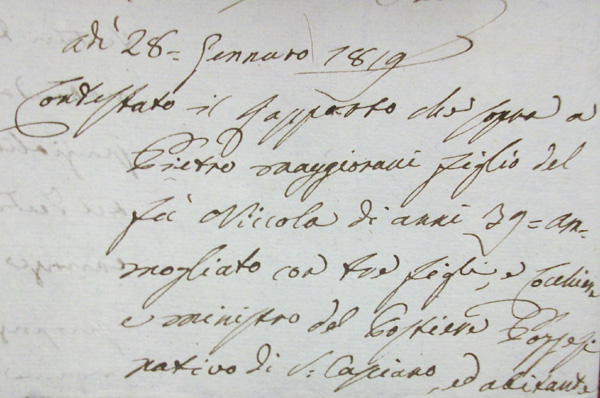 adì 28= Gennaro 1819
Contestato il rapporto che sopra a
Pietro Maggiorani figlio del
fù Niccola di anni 39= am-
mogliato con tre figli, e Cocchiere
e ministro del Postiere Pozzesi
nativo di S: Casciano, ed abitante